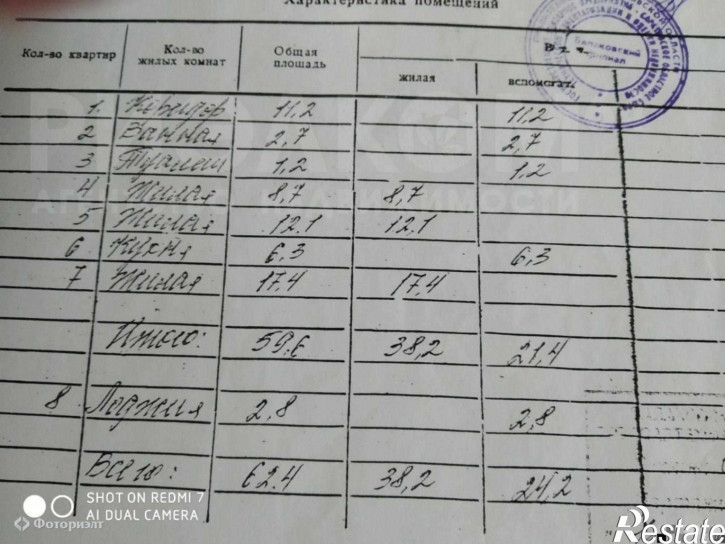 Характеристика помещений
Кол-во квартир Кол-во жилых комнат Общая площадь В т. ч.
жилая вспомогат.
1. Коридор 11,2 11,2
2 Ванная 2,7 2,7
3 Туалет 1,2 1,2
4 Жилая 8,7 8,7
5 Жилая 12,1 12,1
6 Кухня 6,3 6,3
7 Жилая 17,4 17,4
Итого: 59,6 38,2 21,4
8 Лоджия 2,8 2,8
Всего: 62,4 38,2 24,2
SHOT ON REDMI 7
AI DUAL CAMERA
Фоториэлт
Restate